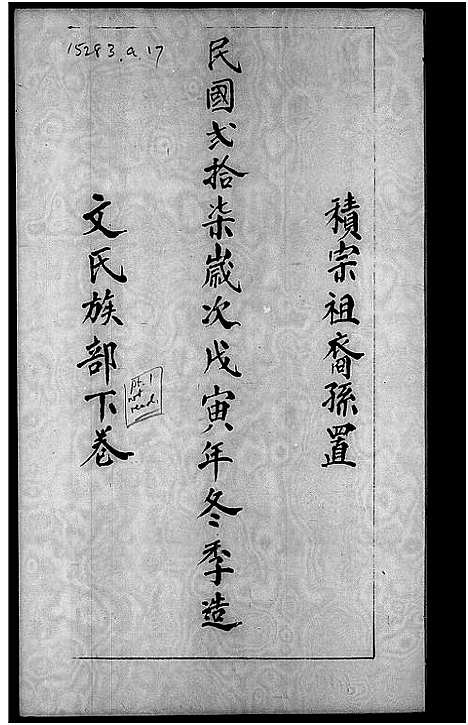 積宗祖裔孫置
民國弍拾柒歲次戊寅年冬季造
文氏族部下卷
15283.a.17
pt. 1
not
recd.